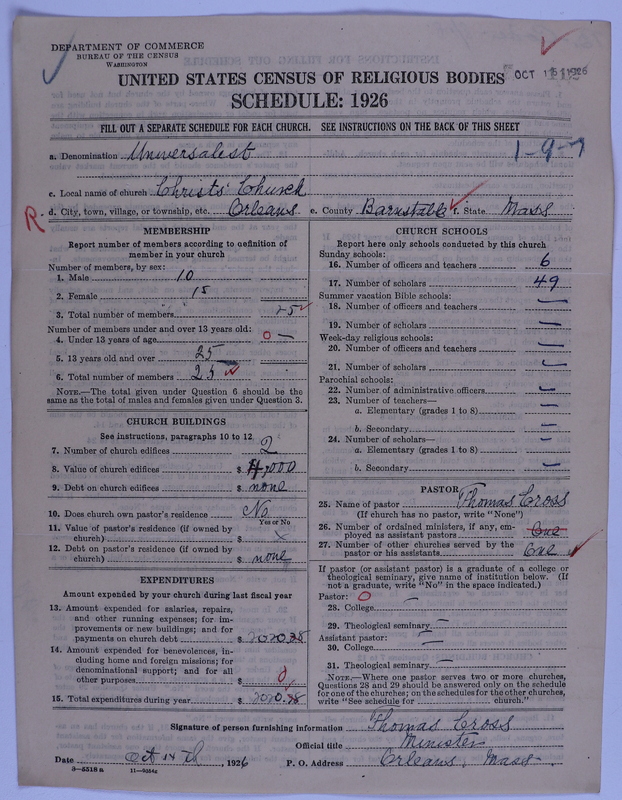 DEPARTMENT OF COMMERCE
BUREAU OF THE CENSUS
WASHINGTON
UNITED STATES CENSUS OF RELIGIOUS BODIES
OCT 15 1926
SCHEDULE: 1926
FILL OUT A SEPARATE SCHEDULE FOR EACH CHURCH. SEE INSTRUCTIONS ON THE BACK OF THIS SHEET
a. Denomination Universalist
1-9-7
c. Local name of church Christs' Church
R d. City, town, village, or township, etc. Orleans e. County Barnstable f. State Mass
MEMBERSHIP
Report number of members according to definition of
member in your church
Number of members, by sex:
1. Male 10
2. Female 15
3. Total number of members 25
Number of members under and over 13 years old:
4. Under 13 years of age 0 —
5. 13 years old and over 25
6. Total number of members 25
NOTE.—The total given under Question 6 should be the
same as the total of males and females given under Question 3.
CHURCH BUILDINGS
See instructions, paragraphs 10 to 12
7. Number of church edifices 2
8. Value of church edifices $ 4,000
9. Debt on church edifices $ none
10. Does church own pastor's residence No
Yes or No
11. Value of pastor's residence (if owned by
church) $ x
12. Debt on pastor's residence (if owned by
church) $ none
EXPENDITURES
Amount expended by your church during last fiscal year
13. Amount expended for salaries, repairs,
and other running expenses; for im-
provements or new buildings; and for
payments on church debt $ 2020.38
14. Amount expended for benevolences, in-
cluding home and foreign missions; for
denominational support; and for all
other purposes $ 0
15. Total expenditures during year $ 2020.38
CHURCH SCHOOLS
Report here only schools conducted by this church
Sunday schools:
16. Number of officers and teachers 6
17. Number of scholars 49
Summer vacation Bible schools:
18. Number of officers and teachers —
19. Number of scholars —
Week-day religious schools:
20. Number of officers and teachers —
21. Number of scholars —
Parochial schools:
22. Number of administrative officers —
23. Number of teachers—
a. Elementary (grades 1 to 8) —
b. Secondary —
24. Number of scholars—
a. Elementary (grades 1 to 8) —
b. Secondary —
PASTOR
25. Name of pastor Thomas Cross
(If church has no pastor, write "None")
26. Number of ordained ministers, if any, em-
ployed as assistant pastors One
27. Number of other churches served by the
pastor or his assistants One
If pastor (or assistant pastor) is a graduate of a college or
theological seminary, give name of institution below. (If
not a graduate, write "No" in the space indicated.)
Pastor: 0
28. College —
29. Theological seminary —
Assistant pastor:
30. College —
31. Theological seminary —
NOTE.—Where one pastor serves two or more churches,
Questions 28 and 29 should be answered only on the schedule
for one of the churches; on the schedules for the other churches,
write "See schedule for church."
Signature of person furnishing information Thomas Cross
Official title Minister
Date Oct 14th, 1926 P. O. Address Orleans, Mass.
8-5518a 11-9054c